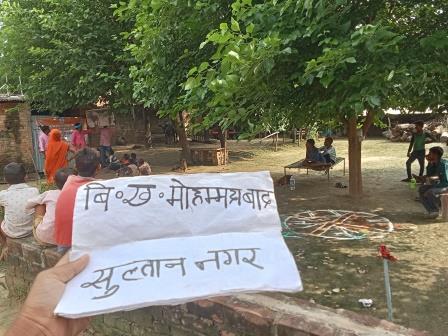 बि॰ख॰मोहम्मदाबाद
सुल्तान नगर